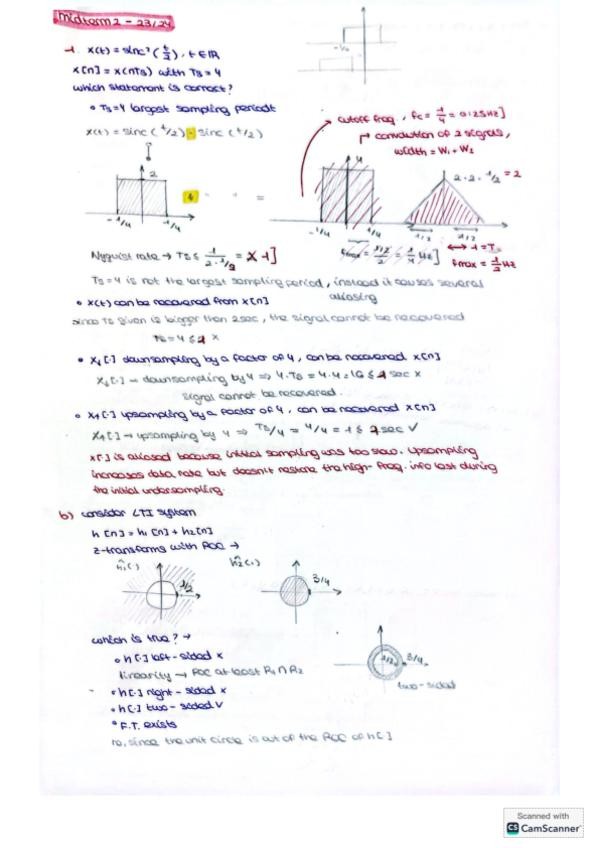 midterm 2 - 23/24
-1. x(t) = sinc²(t/2), t ∈ IR
x[n] = x(nTs) with Ts = 4
which statement is correct?
• Ts=4 largest sampling period?
x(t) = sinc(t/2) · sinc(t/2)
cutoff freq, fc = 1/4 = 0.25Hz]
convolution of 2 signals,
width = W1 + W2
2
-1/4 1/4
=
4
-1/4 1/4
2·2·1/2 = 2
1/2 1/2
fmax = 1/2 Hz
Nyquist rate → Ts ≤ 1/(2·1/2) = 1]
Ts=4 is not the largest sampling period, instead it causes several
aliasing
• x(t) can be recovered from x[n]
since Ts given is bigger than 2sec, the signal cannot be recovered
Ts = 4 ≤ 2 x
• X1[·] downsampling by a factor of 4, can be recovered x[n]
X1[·] → downsampling by 4 => 4·Ts = 4·4 = 16 ≤ 2 sec x
signal cannot be recovered.
• X1[·] upsampling by a factor of 4, can be recovered x[n]
X1[·] → upsampling by 4 => Ts/4 = 4/4 = 1 ≤ 2sec ✓
x[·] is aliased because initial sampling was too slow. Upsampling
increases data rate but doesn't restore the high-freq. info lost during
the initial undersampling.
b) consider LTI system
h[n] = h1[n] + h2[n]
z-transforms with ROC →
ĥ1(·) ĥ2(·)
1/2 3/4
which is true? →
• h[·] left-sided x
linearity → ROC at least R1 ∩ R2
• h[·] right-sided x
• h[·] two-sided ✓
• F.T. exists
no, since the unit circle is out of the ROC of h[·]
1/2 3/4
two-sided
Scanned with
CS CamScanner